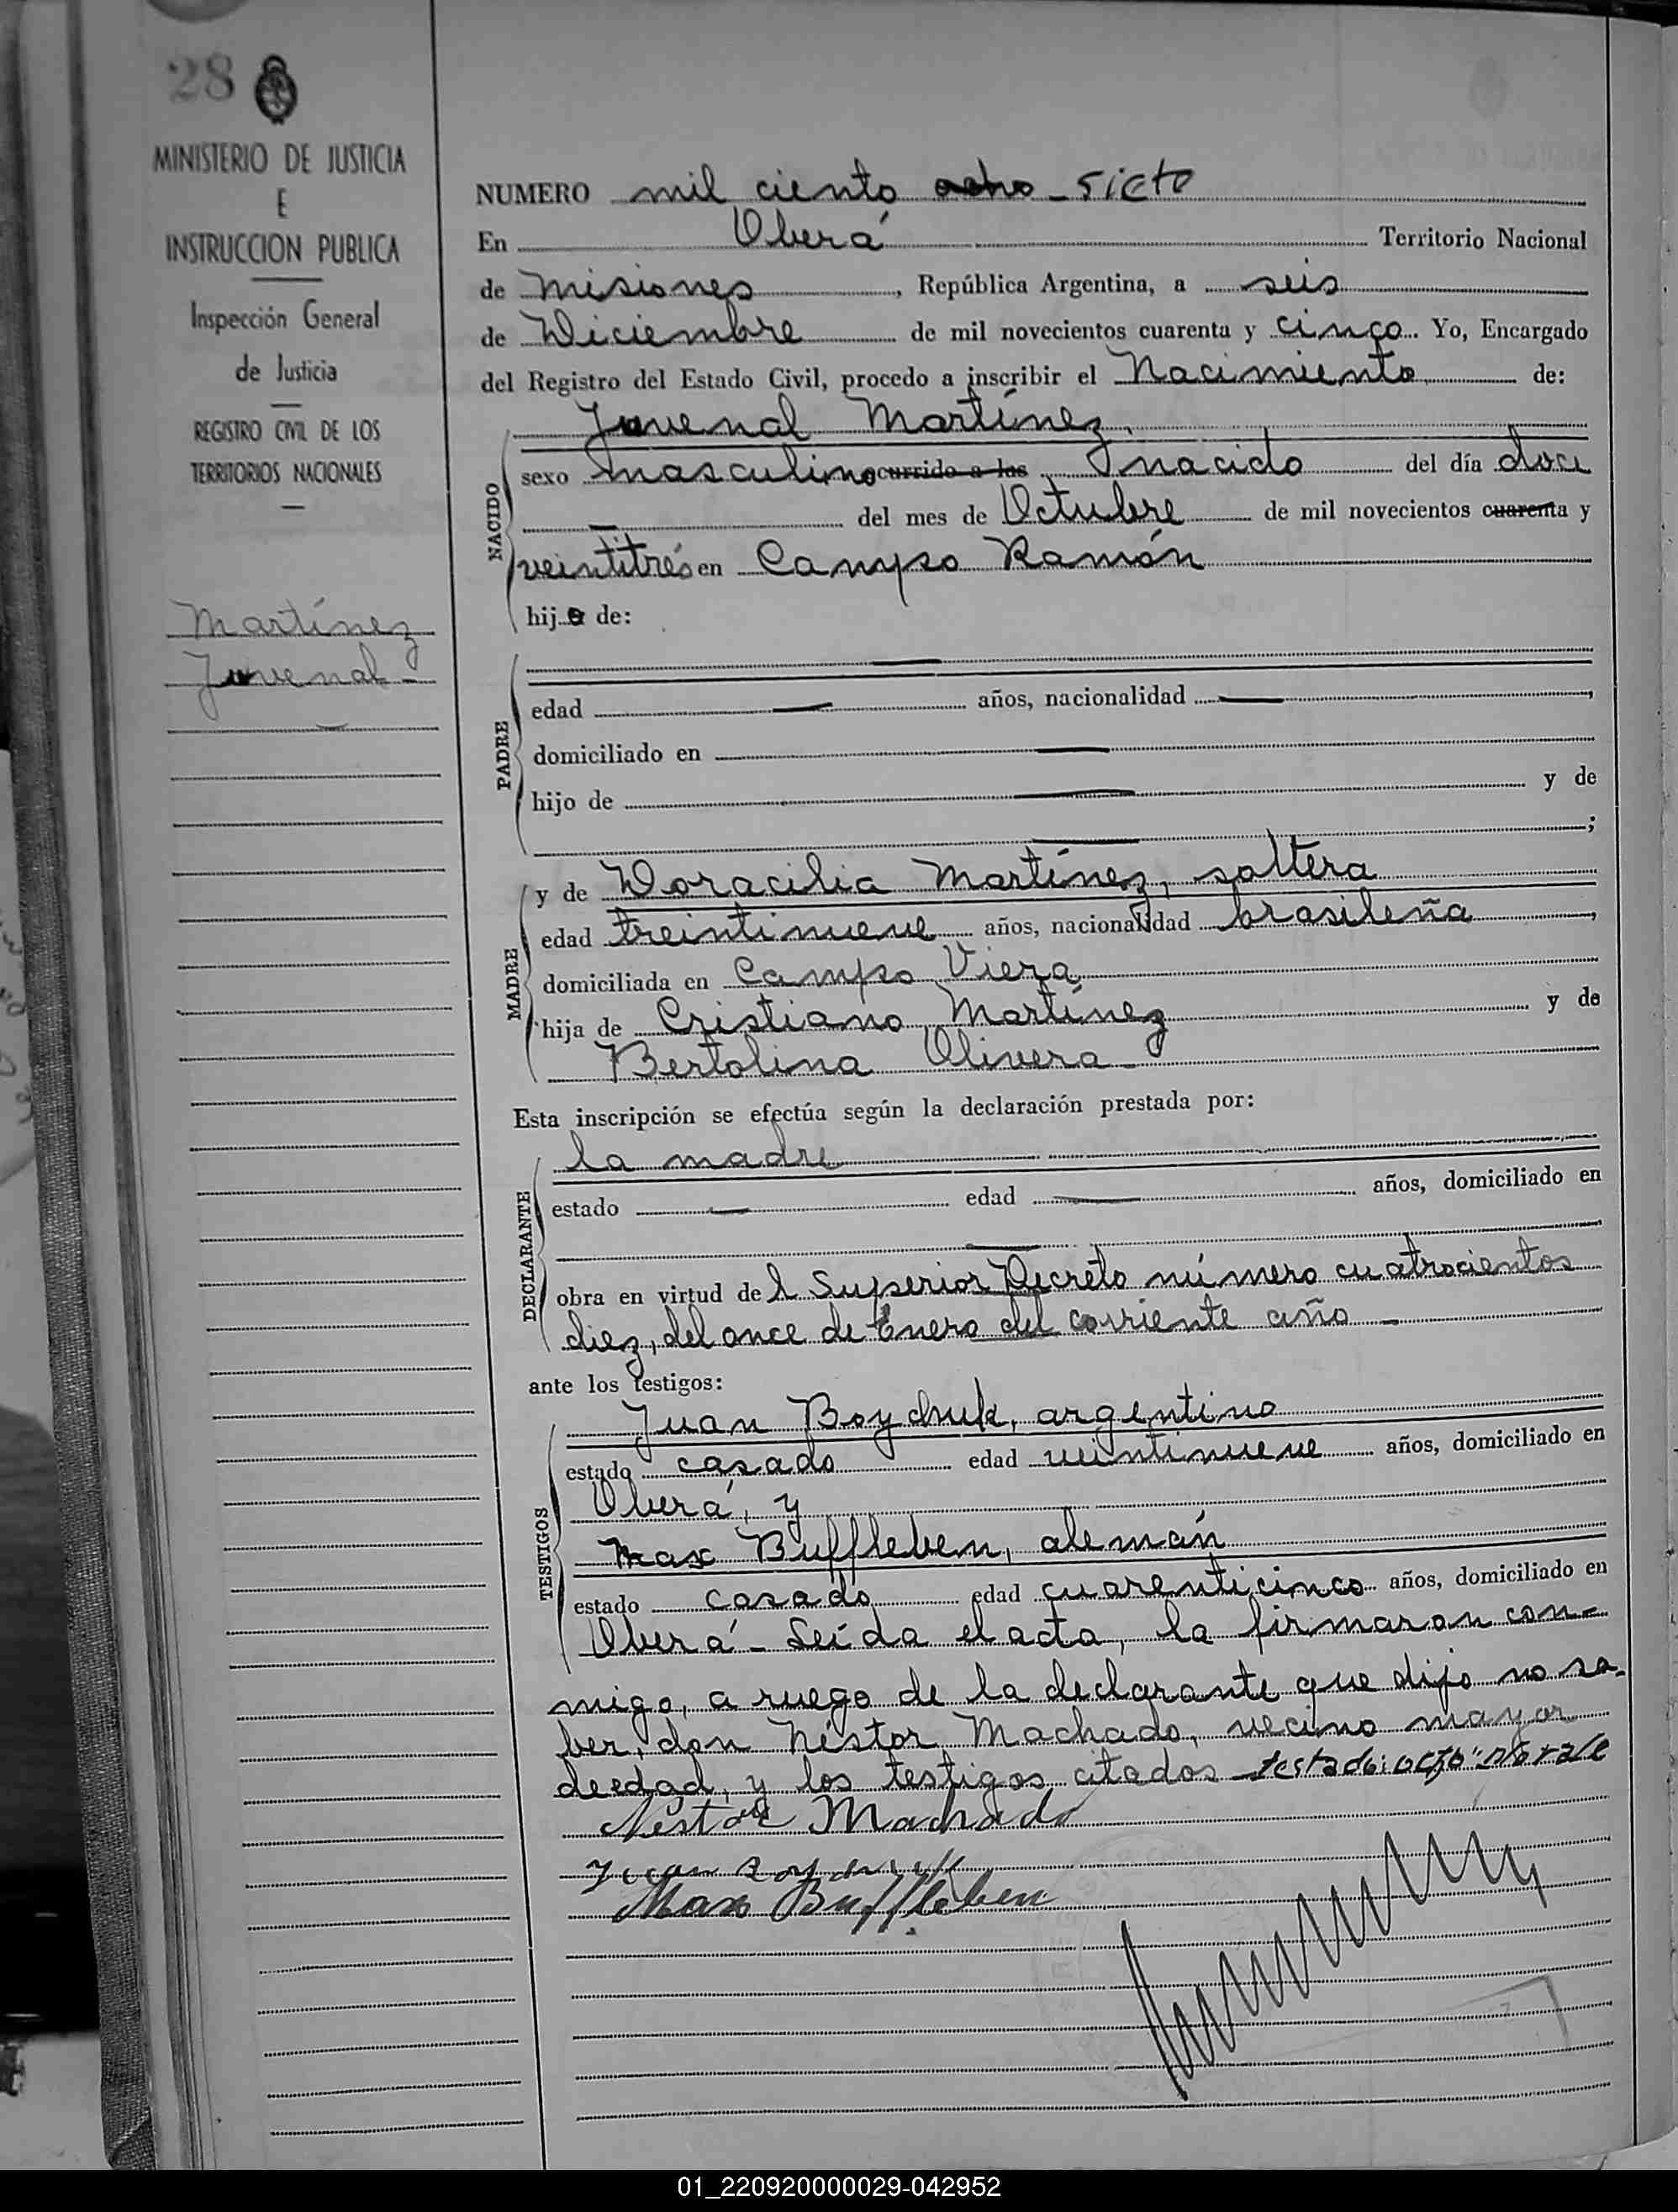 28
MINISTERIO DE JUSTICIA
E
INSTRUCCION PUBLICA
Inspección General
de Justicia
REGISTRO CIVIL DE LOS
TERRITORIOS NACIONALES
Martínez
Juvenal -
NUMERO mil ciento ocho - siete
En Oberá Territorio Nacional
de Misiones, República Argentina, a seis
de Diciembre de mil novecientos cuarenta y cinco. Yo, Encargado
del Registro del Estado Civil, procedo a inscribir el Nacimiento de:
Juvenal Martínez.
NACIDO
sexo masculino ocurrido a las nacido del día doce
del mes de Octubre de mil novecientos cuarenta y
veintitrés en Campo Ramón
hijo de:
PADRE
edad — años, nacionalidad —,
domiciliado en —
hijo de — y de
—;
MADRE
y de Doracilia Martínez, soltera
edad treintinueve años, nacionalidad brasileña,
domiciliada en Campo Viera
hija de Cristiano Martínez y de
Bertolina Olivera -
Esta inscripción se efectúa según la declaración prestada por:
DECLARANTE
la madre
estado — edad — años, domiciliado en
—
obra en virtud del Superior Decreto número cuatrocientos
diez, del once de Enero del corriente año -
ante los testigos:
TESTIGOS
Juan Boychuk, argentino
estado casado edad veintinueve años, domiciliado en
Oberá, y
Max Buffleben, alemán
estado casado edad cuarenticinco años, domiciliado en
Oberá - Leída el acta, la firmaron con-
migo, a ruego de la declarante que dijo no sa-
ber, don Néstor Machado, vecino mayor
de edad, y los testigos citados - testado: ocho: no vale
Néstor Machado
Juan Boychuk
Max Buffleben
01_220920000029-042952